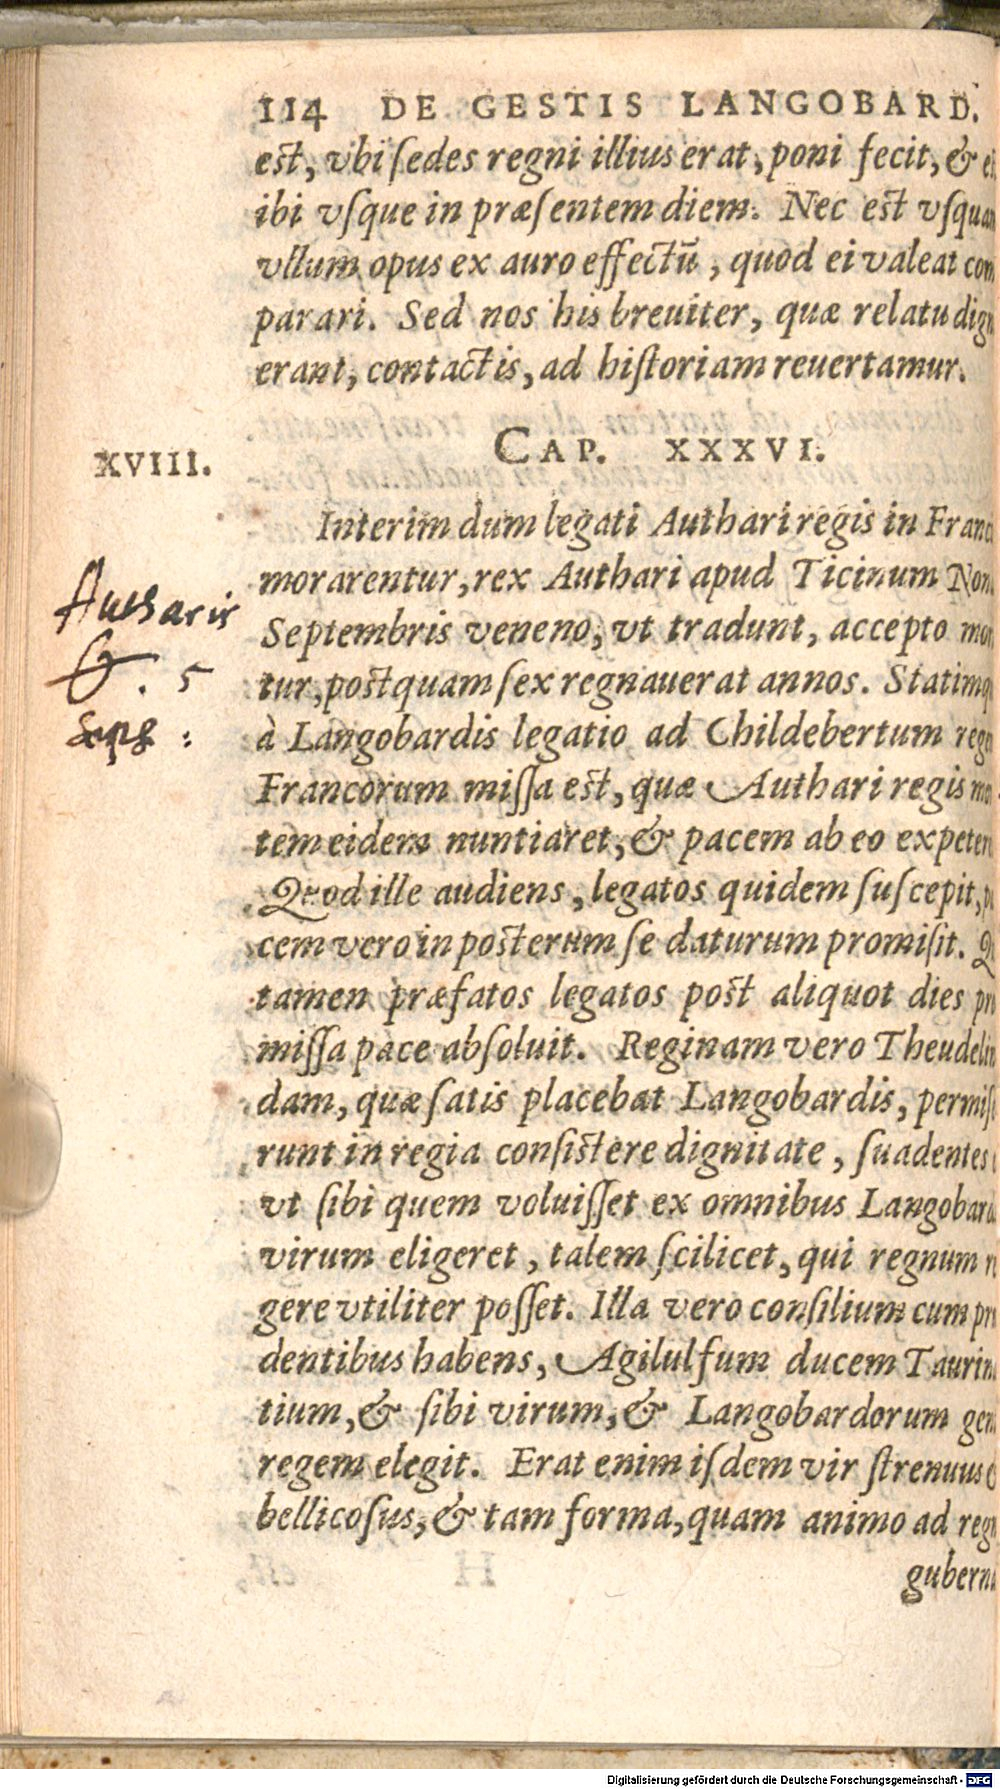 114 DE GESTIS LANGOBARD.
est, vbi ſedes regni illius erat, poni fecit, &
ibi vſque in præſentem diem. Nec est
vllum opus ex auro effectū, quod ei valeat
parari. Sed nos his breuiter, quæ relatu
erant, contactis, ad hiſtoriam reuertamur.
CAP. XXXVI.
XVIII.
Interim dum legati Authari regis in
morarentur, rex Authari apud Ticinum
Septembris veneno, vt tradunt, accepto
tur, postquam ſex regnauerat annos.
à Langobardis legatio ad Childebertum
Francorum miſſa est, quæ Authari regis
tem eidem nuntiaret, & pacem ab eo
Quod ille audiens, legatos quidem ſuſcepit,
cem vero in posterum ſe daturum promiſit.
tamen præfatos legatos post aliquot dies
miſſa pace abſoluit. Reginam vero
dam, quæ ſatis placebat Langobardis,
runt in regia conſistere dignitate, ſuadentes
vt ſibi quem voluiſſet ex omnibus
virum eligeret, talem ſcilicet, qui regnum
gere vtiliter poſſet. Illa vero conſilium cum
dentibus habens, Agilulfum ducem
tium, & ſibi virum, & Langobardorum
regem elegit. Erat enim iſdem vir ſtrenuus
bellicoſus, & tam forma, quam animo ad
Autharis
. 5
:
Digitalisierung gefördert durch die Deutsche Forschungsgemeinschaft - DFG